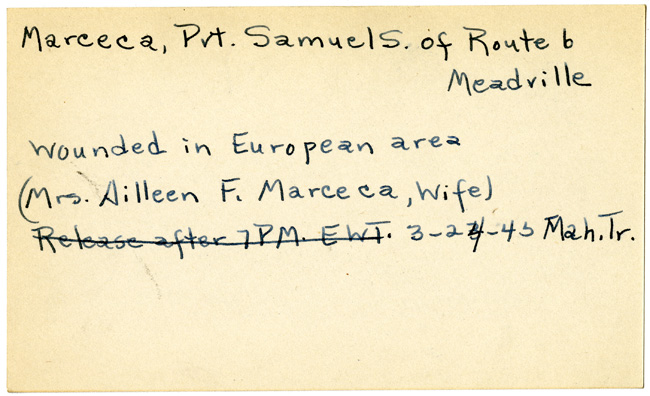 Marceca, Pvt. Samuel S. of Route 6
Meadville
Wounded in European area
(Mrs. Ailleen F. Marceca, Wife)
Release after 7PM. EWT. 3-24-45 Mah. Tr.